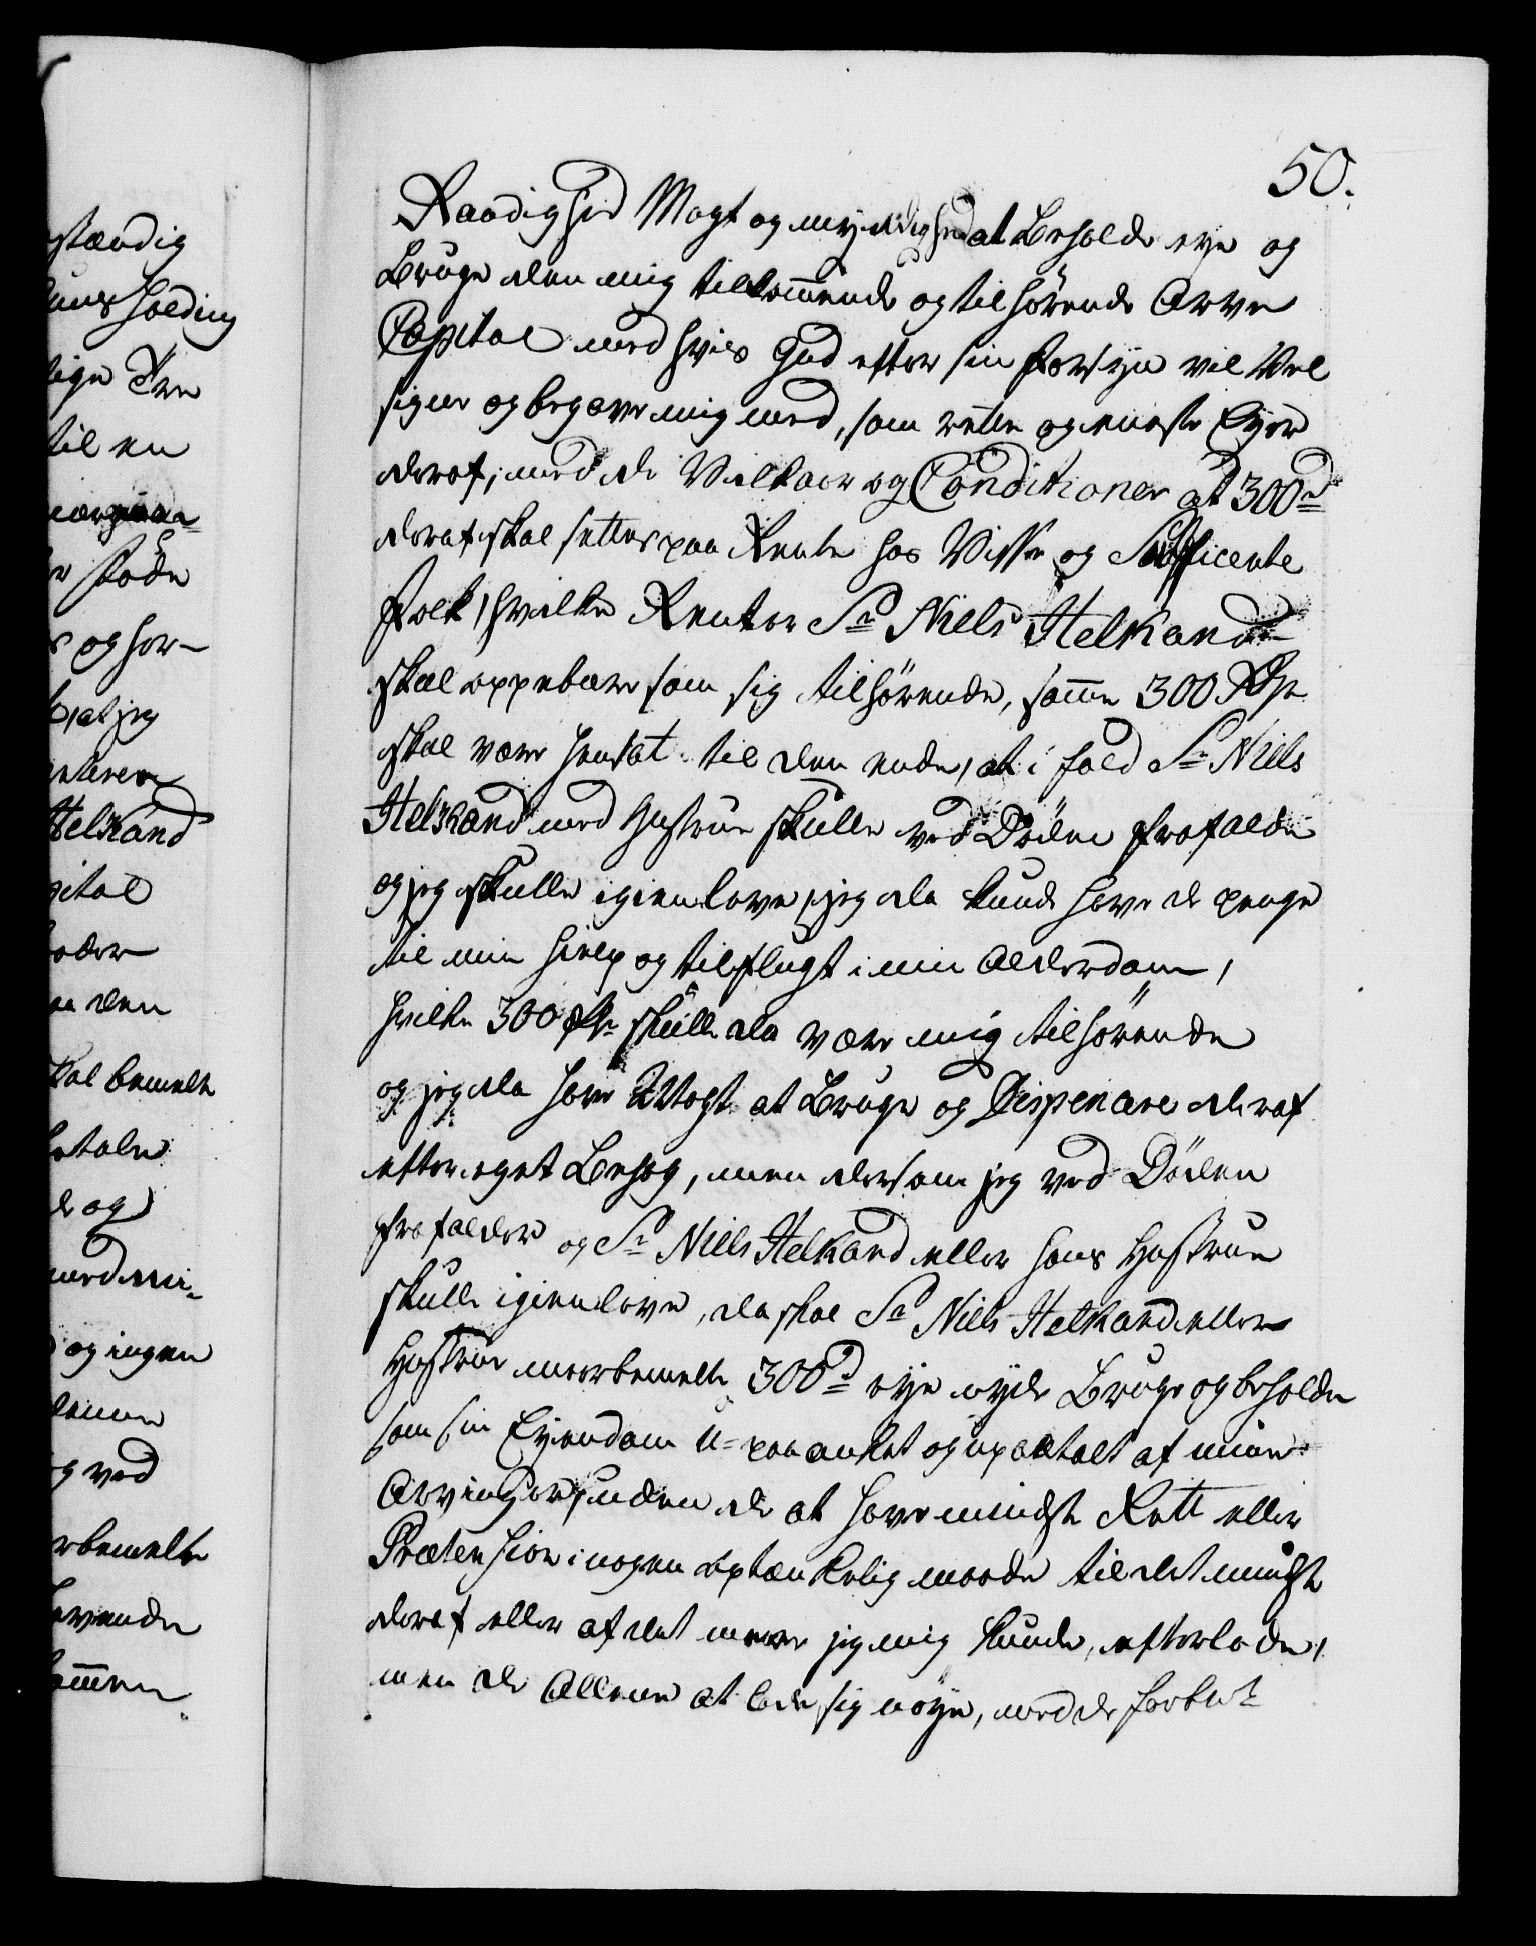 50.
Raadighed Magt og myndighed at Beholde eye og
Bruge den mig tilkom̄ende og tilhörende Arve
Capital med hvis Gud efter sin forsyn vil Vel
signe og begave mig med, som rette og eneste Eyer
deraf, med de Vilkaar og Conditioner at 300 d
deraf skal settes paa Rente hos Visse og Sufficente
folk, hvilke Renter Sr Niels Helkand
skal oppebære som sig tilhörende, sam̄e 300 Rdr
skal være hensat til den ende, at i fald Sr Niels
Helkand med Hustrue skulle ved Döden frafalde
og jeg skulle igienleve, jeg da kunde have de penge
til min hielp og tilflugt i min Alderdom,
hvilke 300 Rdr skulle da være mig tilhörende
og jeg da have Magt at Bruge og Dispenere deraf
efter eget Behag, men dersom jeg ved Döden
frafalder og Sr Niels Helkand eller hans Hustrue
skulle igienleve, da skal Sr Niels Helkand eller
Hustrue meerbemelte 300 d eye nyde Bruge og beholde
som sin Eyendom u-paaanket og upaatalt af mine
Arvinger, uden de at have mindste Rett eller
Prætension i nogen optænkelig maade til det mindste
deraf eller af det meere jeg mig kunde, efterlade,
men de Allene at lade sig nöye, med de forbe-
stændig
Holding
til en
föde
og for-
at jeg
Helkand
pital
den
skal bemelte
betale
de og
med mi-
og ingen
og ved
rbemelte
levende